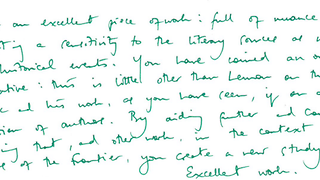 an excellent piece of work: full of nuance
a sensitivity to the literary sources as
historical events. You have coined an
: this is little other than Lennon on the
and his work, as you have seen, if an
of author. By aiding further ad
that, and other work, in the context
of the frontier, you create a new study
Excellent work.